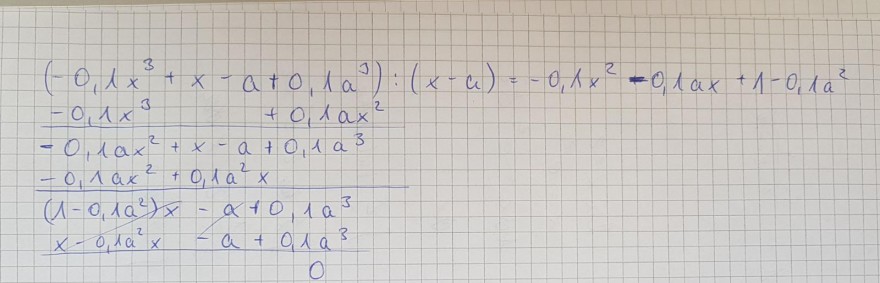 (-0,1x³ + x - a + 0,1a³) : (x - a) = -0,1x² - 0,1ax + 1 - 0,1a²
-0,1x³ + 0,1ax²
-0,1ax² + x - a + 0,1a³
-0,1ax² + 0,1a²x
(1 - 0,1a²)x - a + 0,1a³
x - 0,1a²x - a + 0,1a³
0